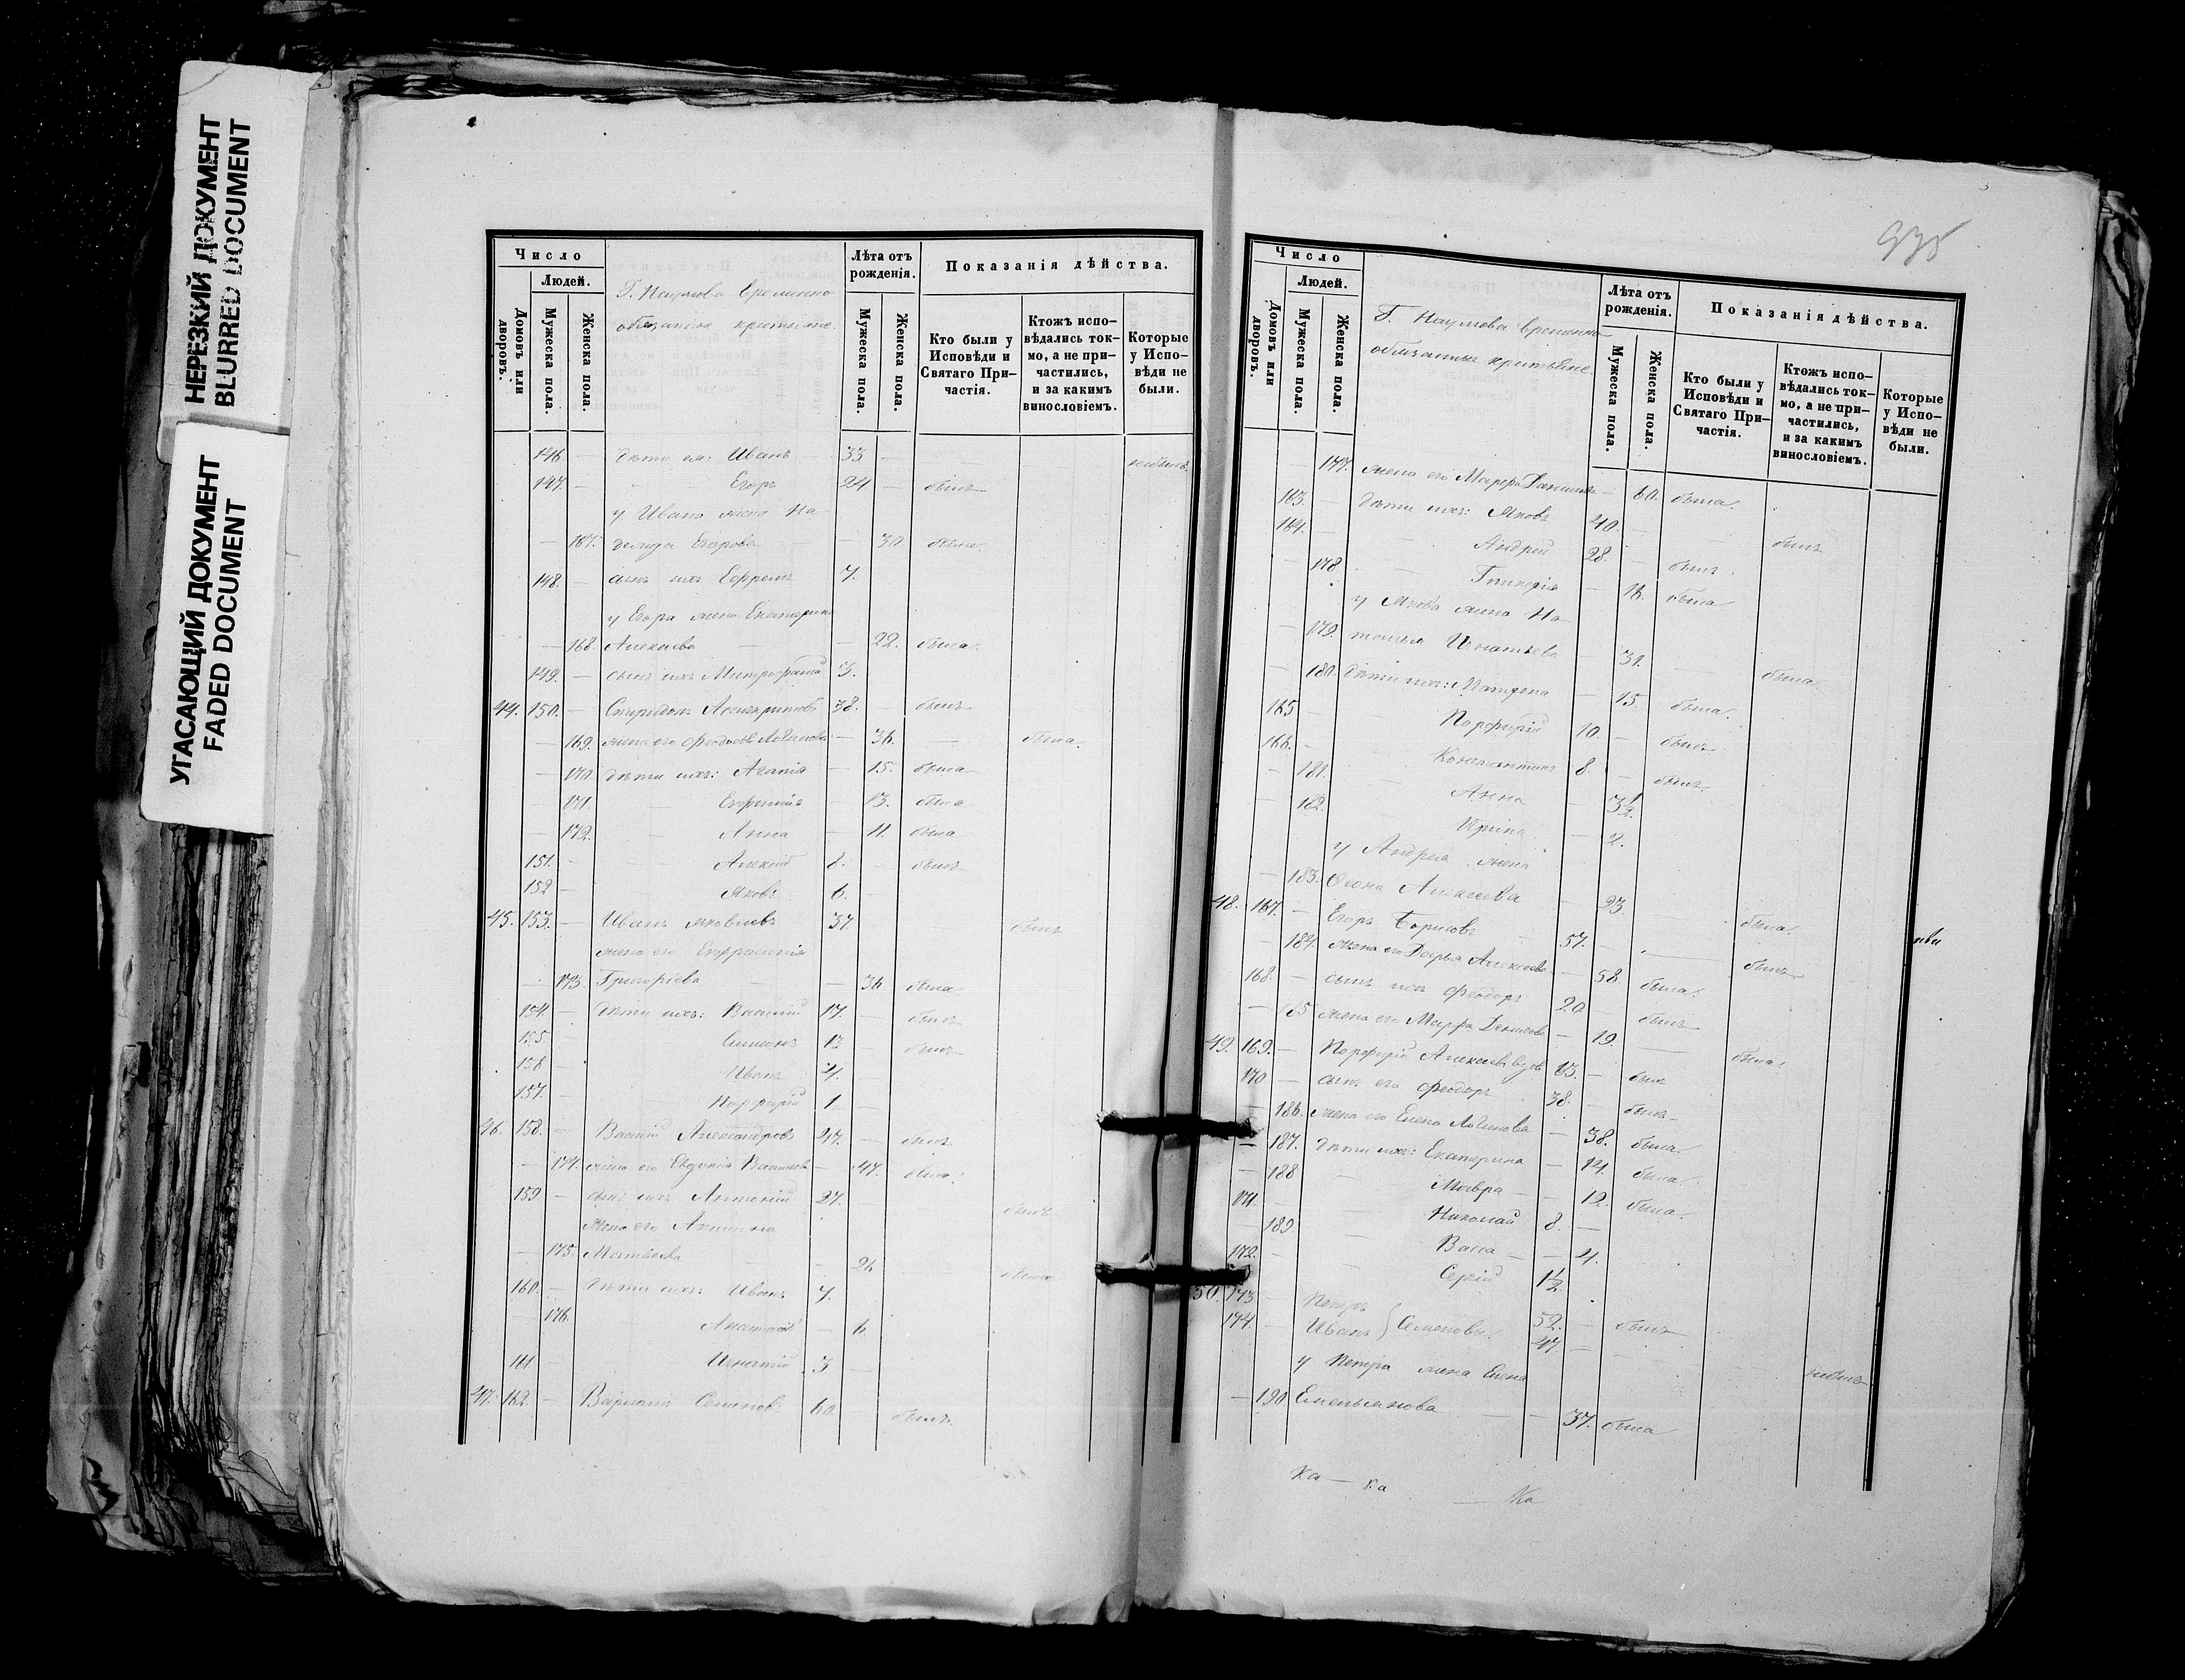 НЕРЕЗКИЙ ДОКУМЕНТ
BLURRED DOCUMENT
УГАСАЮЩИЙ ДОКУМЕНТ
FADED DOCUMENT
Число
Людей.
Домовъ или дворовъ.
Мужеска пола.
Женска пола.
Г. Наумова временно
обязанные крестьяне.
Лѣта отъ рожденія.
Мужеска пола.
Женска пола.
Показанія дѣйства.
Кто были у Исповѣди и Святаго Причастія.
Ктожъ исповѣдались токмо, а не причастились, и за какимъ винословіемъ.
Которые у Исповѣди не были.
146. — дѣти ея: Иванъ 33 — небылъ
147. — Егоръ 24 — былъ
у Ивана жена На-
— 167. Егорова — 30. была
148. — сынъ ихъ Ефремъ 7.
у Егора жена Екатерина
— 168. Алексѣева — 22. была.
149. — сынъ ихъ Митрофаній 3.
44. 150. — Спиридонъ 38. — былъ
— 169. жена его Феодосія Логинова — 36. — была.
— 170. дѣти ихъ: Агапія — 15. была
— 171. — 13. была
— 172. Анна — 11. была
151. — Алексій 8. — былъ
152 — Яковъ 6.
45. 153. — Иванъ Яковлевъ 37 былъ
жена его Евфросинія
— 173. Григоріева — 36 была
154. — дѣти ихъ: Василій 17. — былъ
155. Симеонъ 13 былъ
156 Иванъ 4.
157. Порфирій 1
46. 158. — Василій Александровъ 47. — былъ
— 174. жена его Евдокія Васильева — 47. была.
159 — сынъ ихъ Антоній 27. былъ
жена его Акилина
— 175. Матвѣева — 26 была
160. — дѣти ихъ: Иванъ 7.
176. — 6.
161 Игнатій 3
47. 162. — Семеновъ 60. — былъ.
935
Число
Людей.
Домовъ или дворовъ.
Мужеска пола.
Женска пола.
Г. Наумова временно-
обязанные крестьяне.
Лѣта отъ рожденія.
Мужеска пола.
Женска пола.
Показанія дѣйства.
Кто были у Исповѣди и Святаго Причастія.
Ктожъ исповѣдались токмо, а не причастились, и за какимъ винословіемъ.
Которые у Исповѣди не были.
— 177. жена его Марфа Данилова — 60. была.
163. — дѣти ихъ: Яковъ 40. — былъ
164. — Андрей 28. — былъ.
— 178 Гликерія — 16. была
у Якова жена На-
— 179. талья Игнатьева — 31. была
— 180. дѣти ихъ: Матрена — 15. была.
165 Порфирій 10. — былъ
166. — Константинъ 8. — былъ.
— 181. Анна — 3½.
— 182. Ирина — 2.
у Андрея жена
— 183. Алексѣева — 23. была.
48. 167. — Егоръ Борисовъ 57. — былъ
— 184. жена его Дарья Алексѣева — 58. была.
168. — сынъ ихъ Феодоръ 20 — былъ
— 185 жена его Марфа Денисова — 19. — была.
49. 169. — Порфирій Алексѣевъ вдов. 63. — былъ
170 — сынъ его Феодоръ 38. — былъ
— 186. жена его Елена Логинова — 38. была.
— 187. дѣти ихъ: Екатерина — 14. была.
— 188 — Мавра — 12. была.
171. Николай 8. —
— 189. Васса — 4.
172. — Сергій 1½
50. 173 — Петръ 52. — былъ
174. — Иванъ } Семеновы. 47. — небылъ
у Петра жена Елена
— 190 Емельянова — 37. была
Ка — ка — Ка